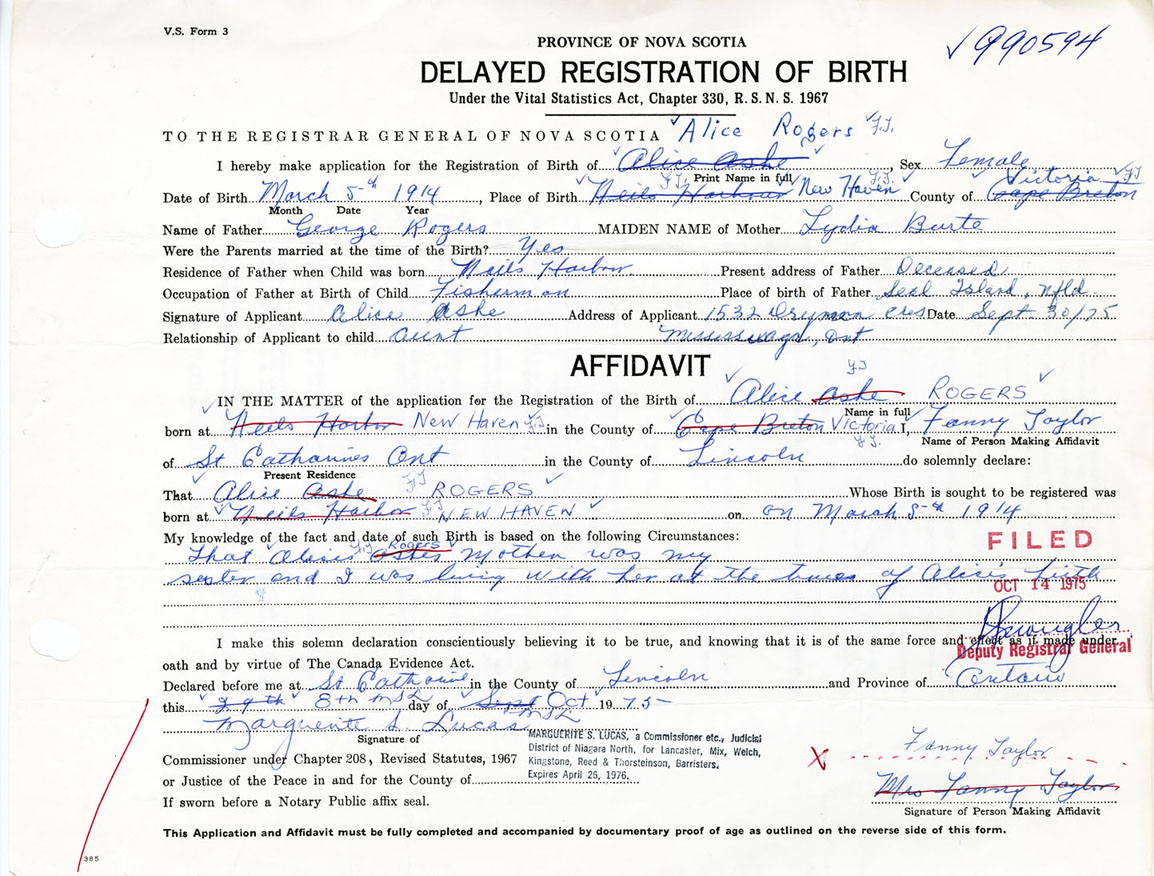 V.S. Form 3
990594
PROVINCE OF NOVA SCOTIA
DELAYED REGISTRATION OF BIRTH
Under the Vital Statistics Act, Chapter 330, R.S.N.S. 1967
TO THE REGISTRAR GENERAL OF NOVA SCOTIA Alice Rogers F.T.
I hereby make application for the Registration of Birth of Alice Ashe, Sex Female
Print Name in full F.T. F.T. Victoria F.T.
Date of Birth March 5th 1914, Place of Birth Neils Harbour New Haven County of Cape Breton
Month Date Year
Name of Father George Rogers MAIDEN NAME of Mother Lydia Burte
Were the Parents married at the time of the Birth? Yes
Residence of Father when Child was born Neils Harbor Present address of Father Deceased
Occupation of Father at Birth of Child Fisherman Place of birth of Father Seal Island, Nfld.
Signature of Applicant Alice Ashe Address of Applicant 1532 Drymen Cres Date Sept 30/75
Relationship of Applicant to child Aunt Mississuaga, Ont
AFFIDAVIT
F.T.
IN THE MATTER of the application for the Registration of the Birth of Alice Ashe ROGERS
Name in full
born at Neils Harbor New Haven F.T. in the County of Cape Breton Victoria I, Fanny Taylor
F.T. Name of Person Making Affidavit
of St Catharines Ont in the County of Lincoln do solemnly declare:
Present Residence
That Alice Ashe F.T. ROGERS Whose Birth is sought to be registered was
born at Neils Harbor F.T. NEW HAVEN on on March 5th 1914
My knowledge of the fact and date of such Birth is based on the following Circumstances:
FILED
That Alice's Ashes F.T. Rogers Mother was my
sester and I was living with her at the times of Alice's birth
OCT 14 1975
I make this solemn declaration conscientiously believing it to be true, and knowing that it is of the same force and effect as if made under
Deputy Registrar General
oath and by virtue of The Canada Evidence Act.
Declared before me at St Catharine in the County of Lincoln and Province of Ontario
this 8th MSL day of Sept Oct 1975
MSL
Marguerite S. Lucas
Signature of
MARGUERITE S. LUCAS, a Commissioner etc., Judicial
District of Niagara North, for Lancaster, Mix, Welch,
Kingstone, Reed & Thorsteinson, Barristers.
Expires April 25, 1976.
Commissioner under Chapter 208, Revised Statutes, 1967
or Justice of the Peace in and for the County of
X Fanny Taylor
Mrs Fanny Taylor
Signature of Person Making Affidavit
If sworn before a Notary Public affix seal.
This Application and Affidavit must be fully completed and accompanied by documentary proof of age as outlined on the reverse side of this form.
385